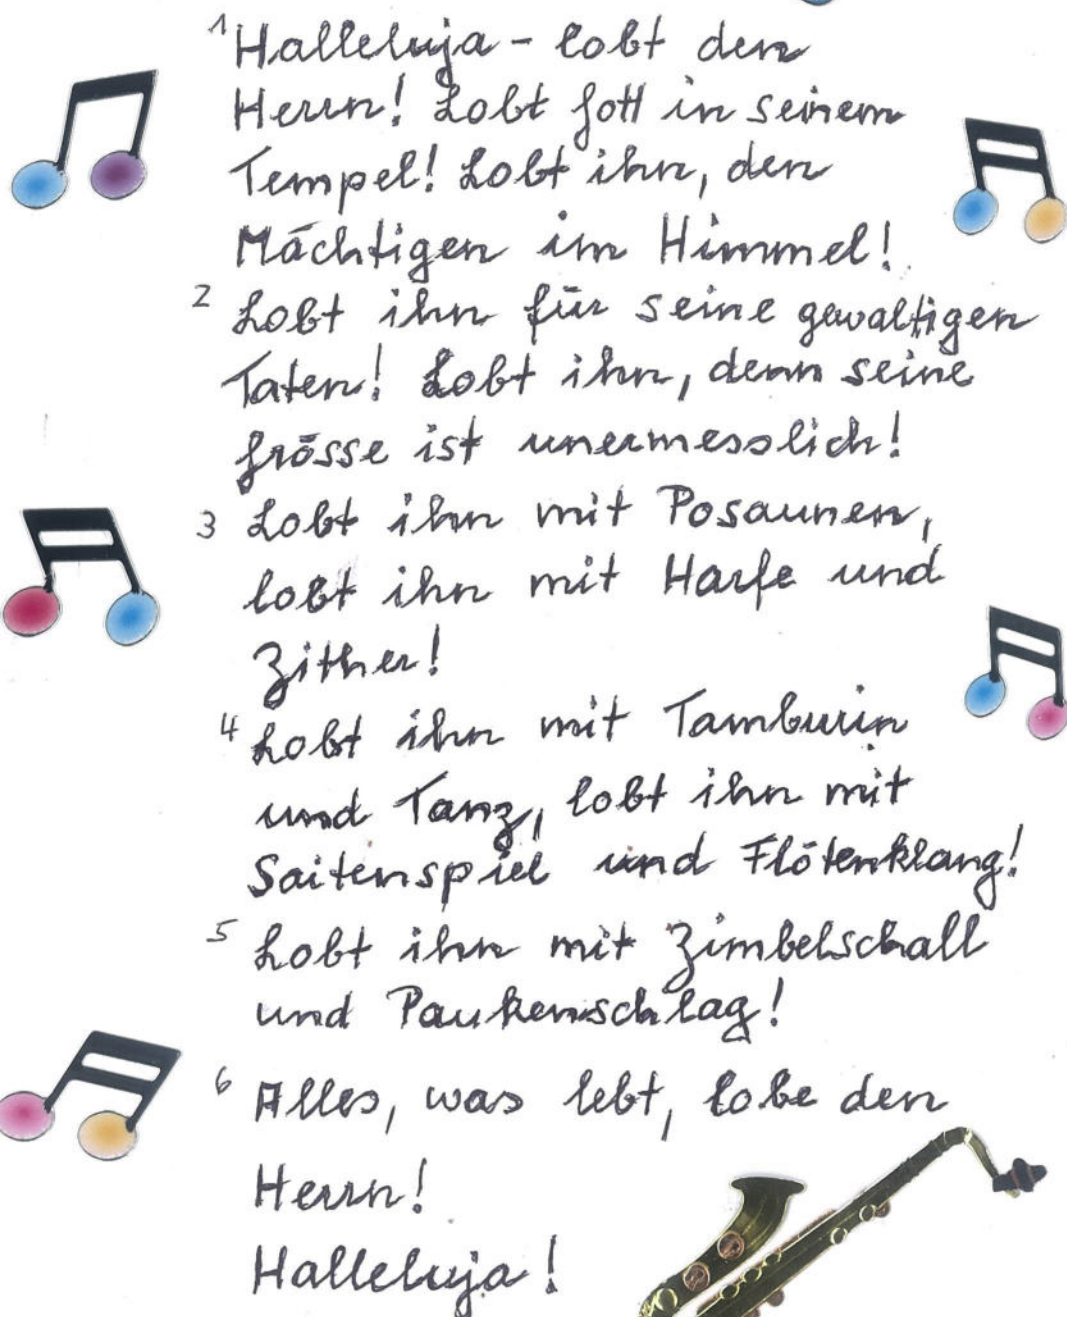 1 Halleluja - lobt den
Herrn! Lobt Gott in seinem
Tempel! Lobt ihn, den
Mächtigen im Himmel!
2 Lobt ihn für seine gewaltigen
Taten! Lobt ihn, denn seine
Grösse ist unermesslich!
3 Lobt ihn mit Posaunen,
lobt ihn mit Harfe und
Zither!
4 Lobt ihn mit Tamburin
und Tanz, lobt ihn mit
Saitenspiel und Flötenklang!
5 Lobt ihn mit Zimbelschall
und Paukenschlag!
6 Alles, was lebt, lobe den
Herrn!
Halleluja!